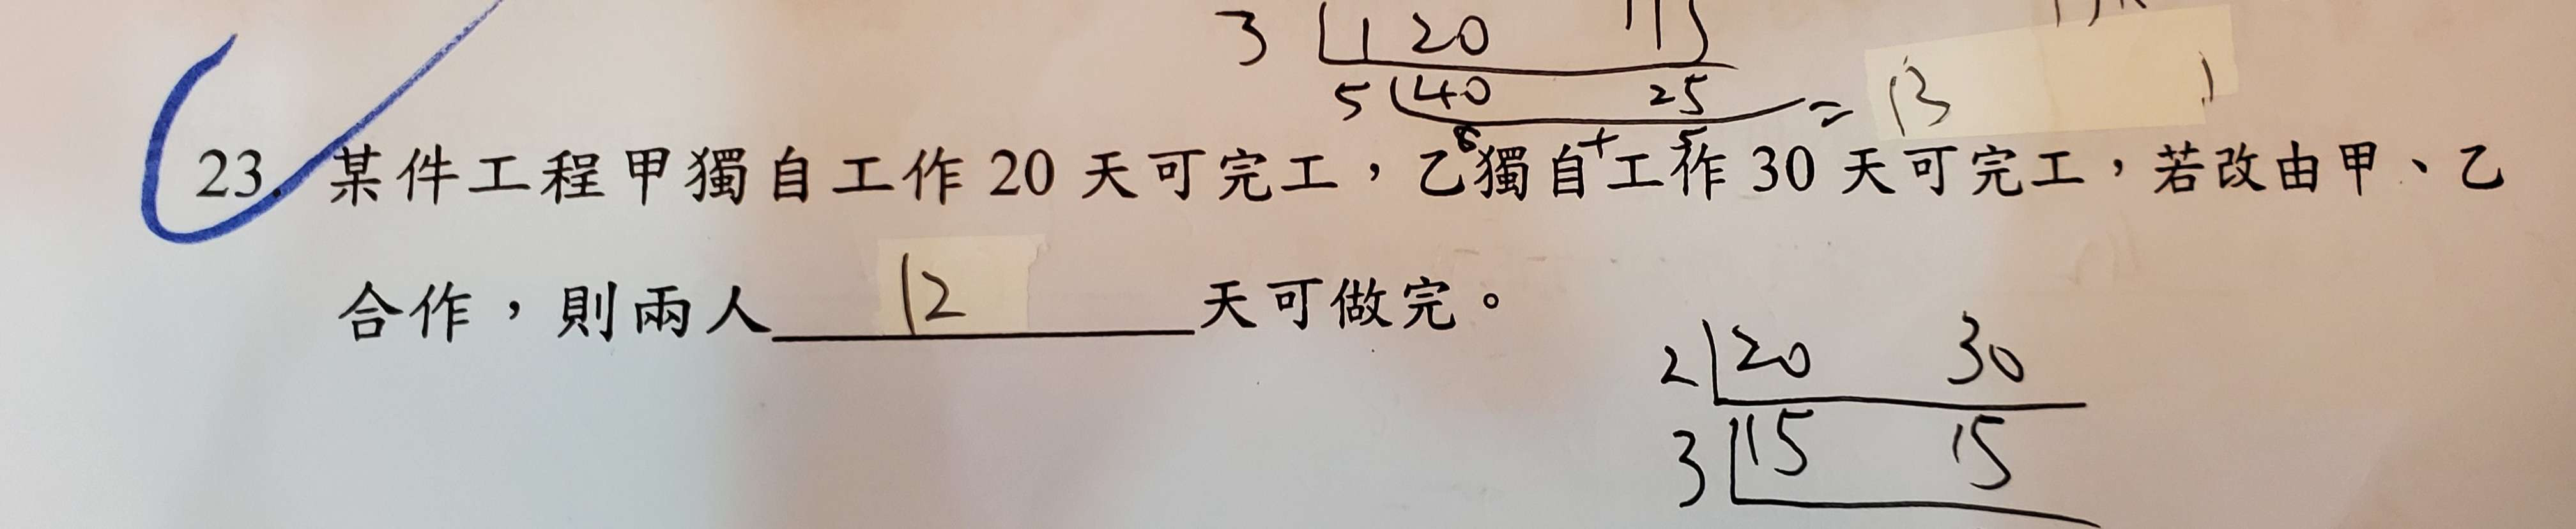 3 120 75
5 40 25 = 13
8 + 5
23. 某件工程甲獨自工作 20 天可完工，乙獨自工作 30 天可完工，若改由甲、乙
合作，則兩人 12 天可做完。
2 20 30
3 15 15